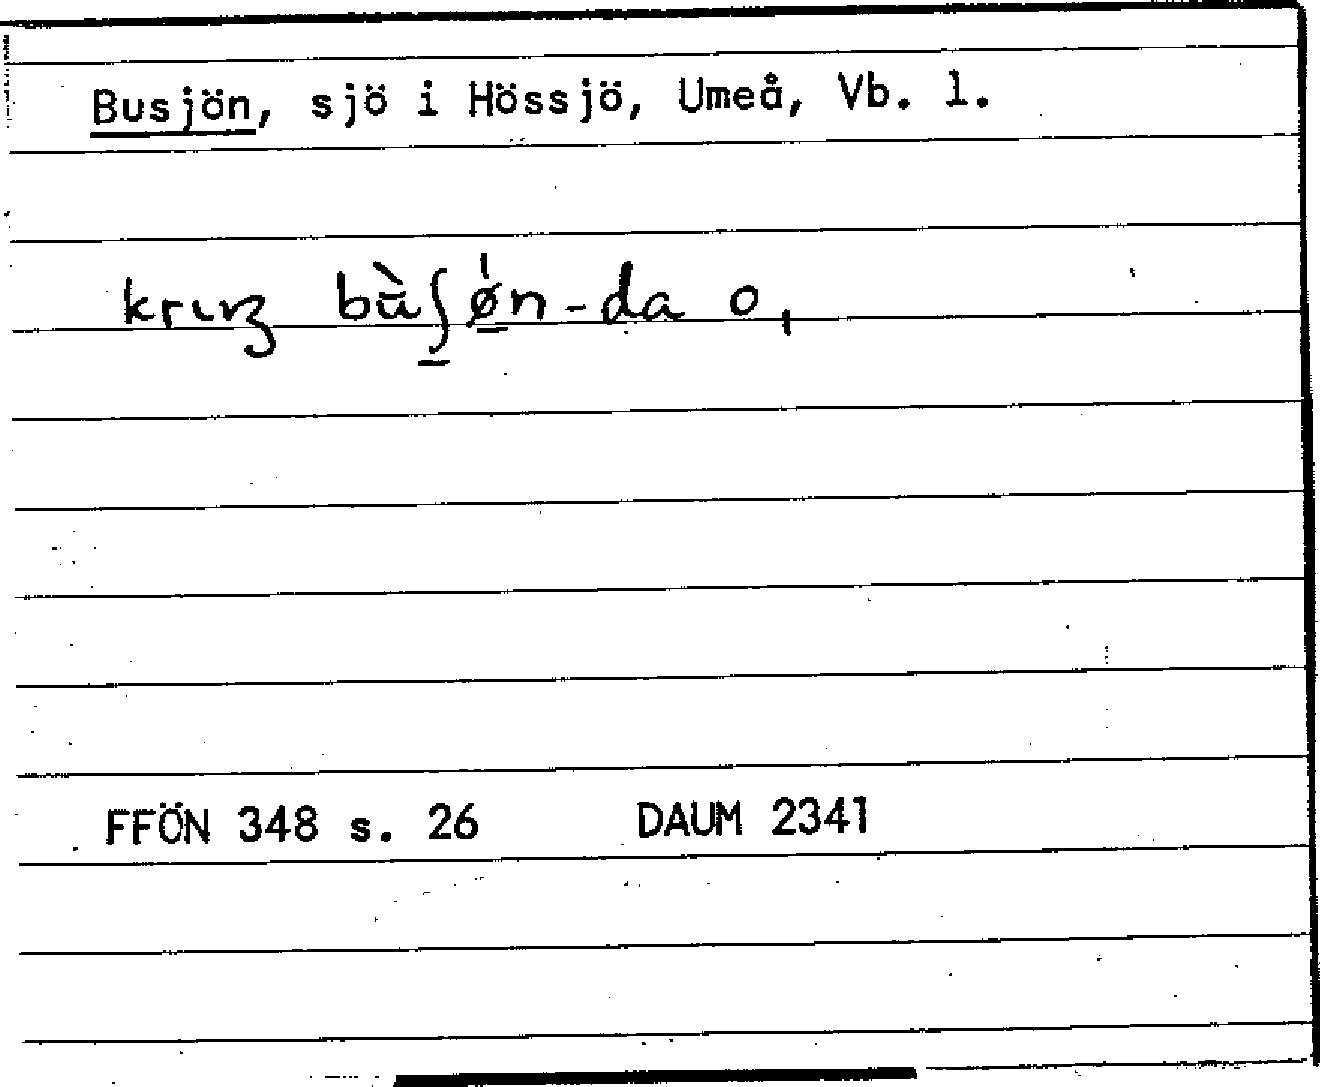 Busjön, sjö i Hössjö, Umeå, Vb. l.
bʉ̀ʃøn-da o,
FFÖN 348 s. 26 DAUM 2341